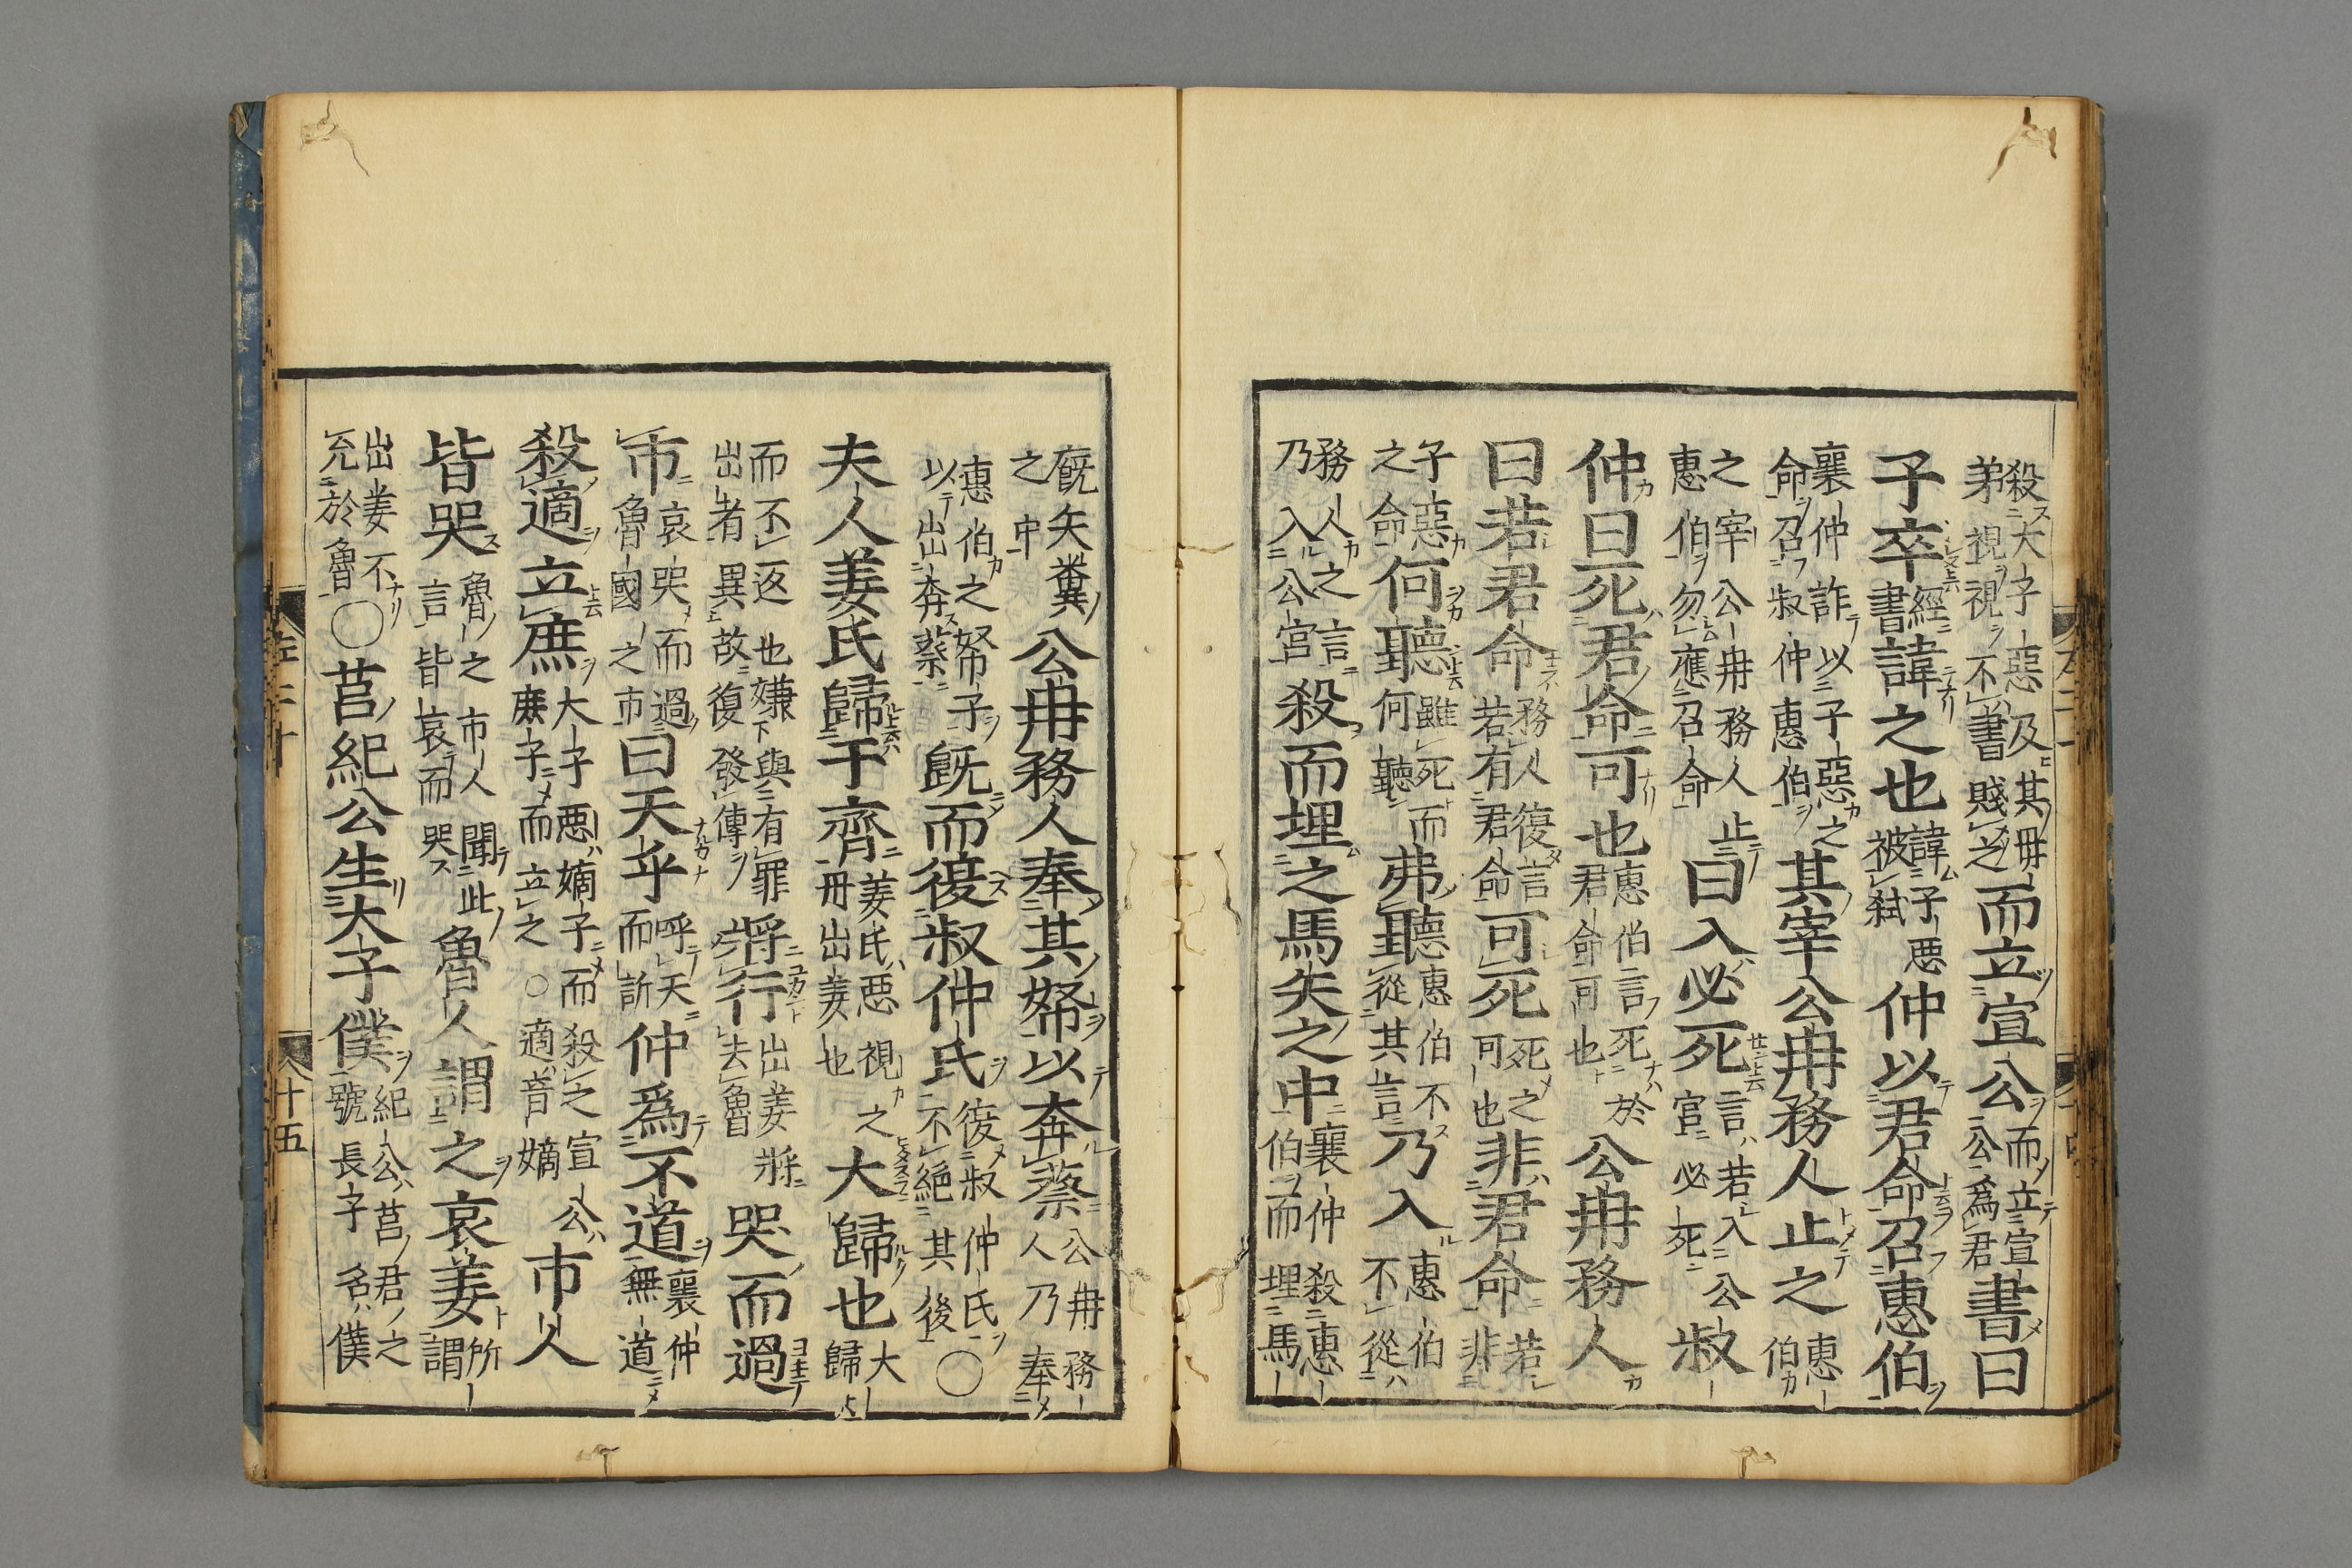 殺大子惡及其毋弟視視不書賤之而立宣公而立宣公為君書曰
子卒經書諱之也諱子惡被弑仲以君命召惠伯
襄仲詐以子惡之命召叔仲惠伯其宰公冉務人止之惠伯
之宰公冉務人止惠伯勿應召命曰入必死言若入公宮必死叔
仲曰死君命可也惠伯言死於君命可也公冉務人
曰若君命務人復言若有君命可死死之可也非君命若非
子惡之命何聽雖死而何聽弗聽惠伯不從其言乃入惠伯不從
務人之言乃入公宮殺而埋之馬矢之中襄仲殺惠伯而埋馬
廐矢糞之中公冉務人奉其帑以奔蔡公冉務人乃奉
惠伯之帑子以出奔蔡旣而復叔仲氏復叔仲氏不絕其後〇
夫人姜氏歸于齊姜氏惡視之毋出姜也大歸也大歸
而不返也嫌與有罪出者異故復發傳將行出姜將去魯哭而過
市哀哭而過魯國之市曰天乎呼天而訴仲爲不道襄仲無道
殺適立庶大子惡嫡子而殺之宣公庶子而立之〇適音嫡市人
皆哭魯之市人聞此言皆哀而哭魯人謂之哀姜所謂
出姜不允於魯〇莒紀公生大子僕紀公莒君之號長子名僕
十五